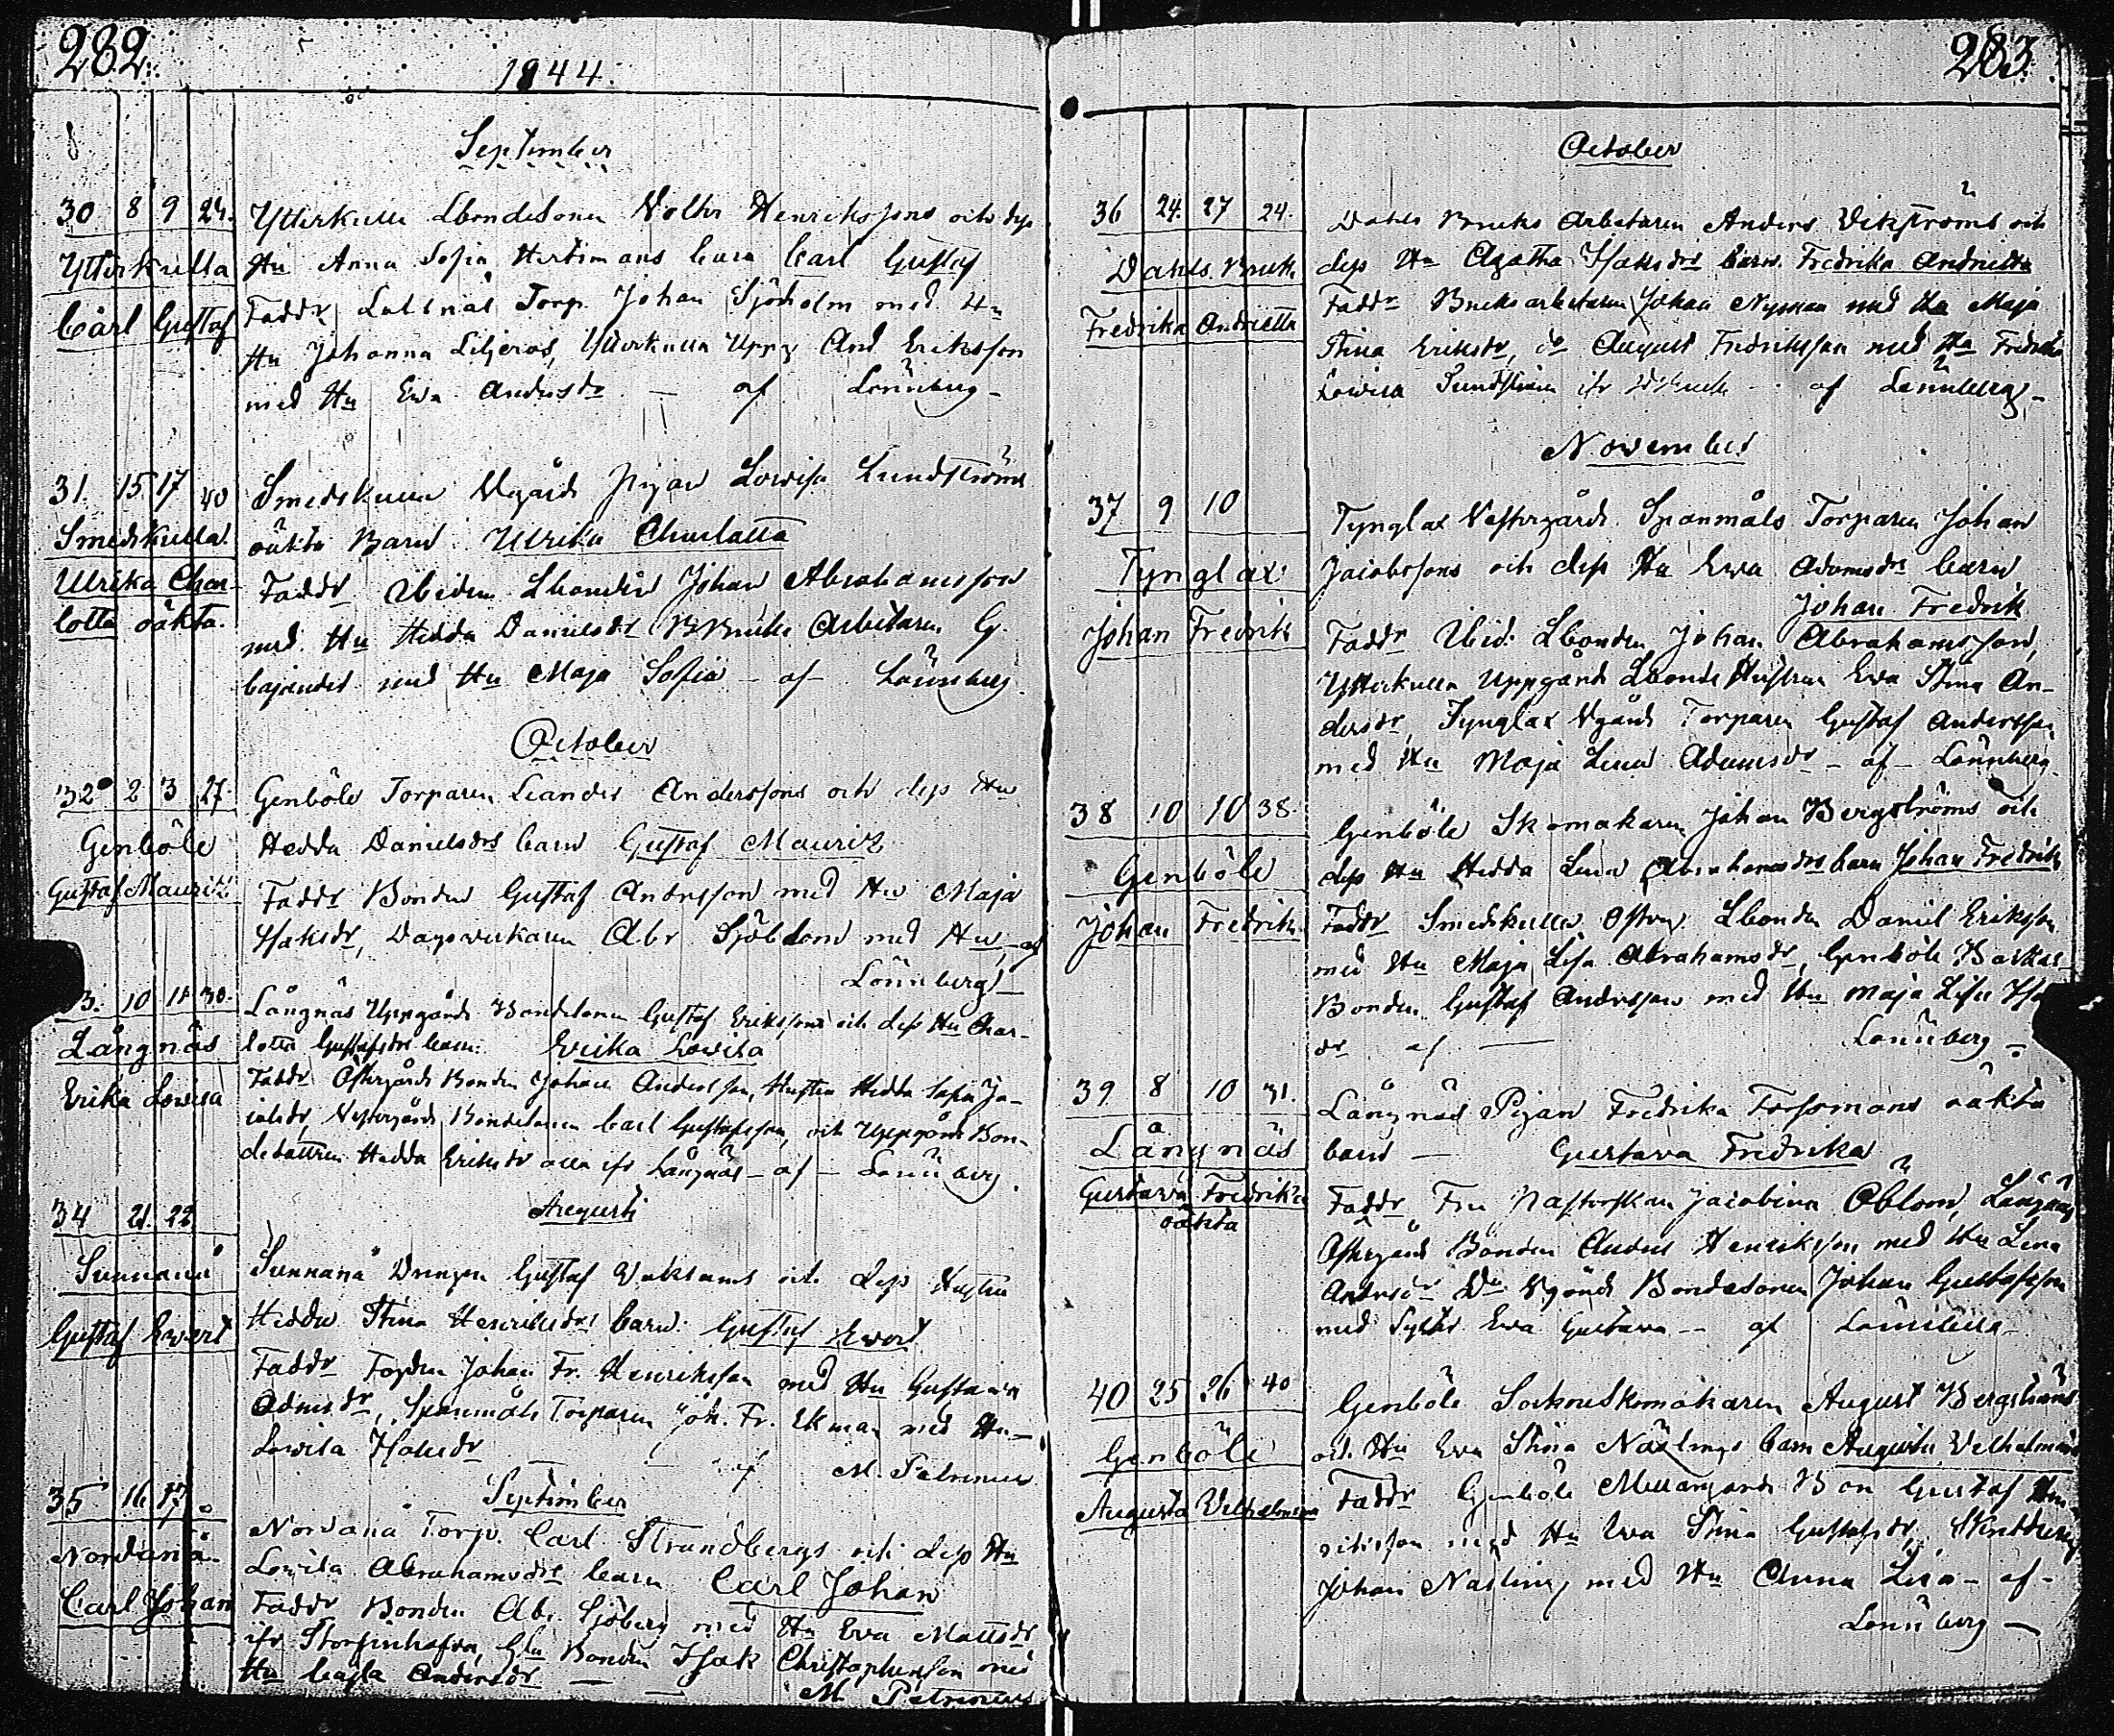 282.
1844.
September
30 8 9 24.
Ytterkulla
Carl Gustaf
Ytterkulla Lbondesonen Henrikssons och dess
Hu Anna Sofia barn Carl Gustaf
Faddr Torp. Johan Sjöholm med
Hu Johanna Liljeros, Ytterkulla Uppg And Eriksson
med Hu Ewa Andersdr — af Lönnberg —
31. 15. 17 40
Smedskulla
Ulrika Char-
lotta oäkta.
Smedskulla Wgårds Pigan Lowisa Lundströms
oäkta Barn Ulrika Charlotta
Faddr Ibidem Lbonden Johan Abrahamsson
med Hu Hedda Danielsdr Arbetaren G.
med Hu Maja Sofia — af — Lönnberg
October
32 2 3 27.
Genböle
Gustaf Mauritz
Genböle Torparen Leander Anderssons och dess Hu
Hedda Danielsdrs barn Gustaf Mauritz
Faddr Bonden Gustaf Andersson med Hu Maja
Isaksdr, Dagsverkaren Abr Sjöblom med Hu — af
Lönnberg —
3. 10 11 30.
Långnäs
Erika Lowisa
Långnäs Uppgårds Bondesonen Gustaf Erikssons och dess Hu Char-
lotta Gustafsdrs barn: Erika Lowisa
Faddr Östergårds Bonden Johan Andersson, Hustru Hedda Sofia Ja-
cobsdr, Westergårds Bondesonen Carl Gustafsson, och Uppgårds Bon-
dedottren Hedda Eriksdr alla ifr Långnäs — af — Lönnberg.
Augusti
34 21. 22
Sunnanå
Gustaf Ewert
Sunnanå Drengen Gustaf och dess Hustru
Hedda Stina Henriksdrs barn: Gustaf Ewert
Faddr Johan Fr. Henriksson med Hu Gustava
Adamsdr, Spanmåls Torparen Joh. Fr. Ekman med Hu
Lowisa Isaksdr — af M. Petrenius
September
35 16. 17.
Nordanå
Carl Johan
Nordanå Torp. Carl Strandbergs och dess Hu
Lowisa Abrahamsdrs barn Carl Johan
Faddr Bonden Abr. Sjöberg med Hu Ewa Mattsdr
ifr Storfinhofva, Bonden Isak Christophersson med
Hu Cajsa Andersdr — — M Petrenius
283.
October
36 24. 27 24.
Dahls Bruk
Fredrika Andrietta
Dahls Bruks Arbetaren Anders Vikströms och
dess Hu Agatha Isaksdrs barn. Fredrika Andrietta
Faddr Bruksarbetaren Johan Nyman med Hu Maja
Stina Eriksdr, do August Fredriksson med Hu Fredrika
Lowisa ifr — af Lönnberg —
November
37 9 10
Tynglax
Johan Fredrik
Tynglax Westergårds Spanmåls Torparen Johan
Jacobssons och dess Hu Ewa Adamsdrs barn
Johan Fredrik
Faddr Ibid: Lbonden Johan Abrahamsson,
Ytterkulla Uppgårds Lbonde Hustrun Ewa Stina An-
dersdr, Tynglax Wgårds Torparen Gustaf Andersson
med Hu Maja Lena Adamsdr — af — Lönnberg
38 10 10 38.
Genböle
Johan Fredrik
Genböle Skomakaren Johan Bergströms och
dess Hu Hedda Lena Abrahamsdrs barn Johan Fredrik
Faddr Smedskulla Lbonden Daniel Eriksson
med Hu Maja Lisa Abrahamsdr, Genböle
Bonden Gustaf Andersson med Hu Maja Lisa
dr af — Lönnberg —
39 8 10 31.
Långnäs
Gustava Fredrika
oäkta
Långnäs Pigan Fredrika Forssmans oäkta
barn — Gustava Fredrika
Faddr Fru Pastorskan Jacobina Öblom, Långnäs
Östergårds Bonden Anders Henriksson med Hu Lena
Andersdr Do Wgårds Bondesonen Johan Gustafsson
med Syster Ewa Gustava — af Lönnberg —
40 25 26 40
Genböle
Augusta Wilhelmina
Genböle Sockneskomakaren August Bergströms
och Hu Ewa Stina Näslings barn Augusta Wilhelmina
Faddr Genböle Mellangårds Bon Gustaf Hen-
riksson med Hu Ewa Stina Gustafsdr,
Johan Nasling med Hu Anna Lisa — af —
Lönnberg —